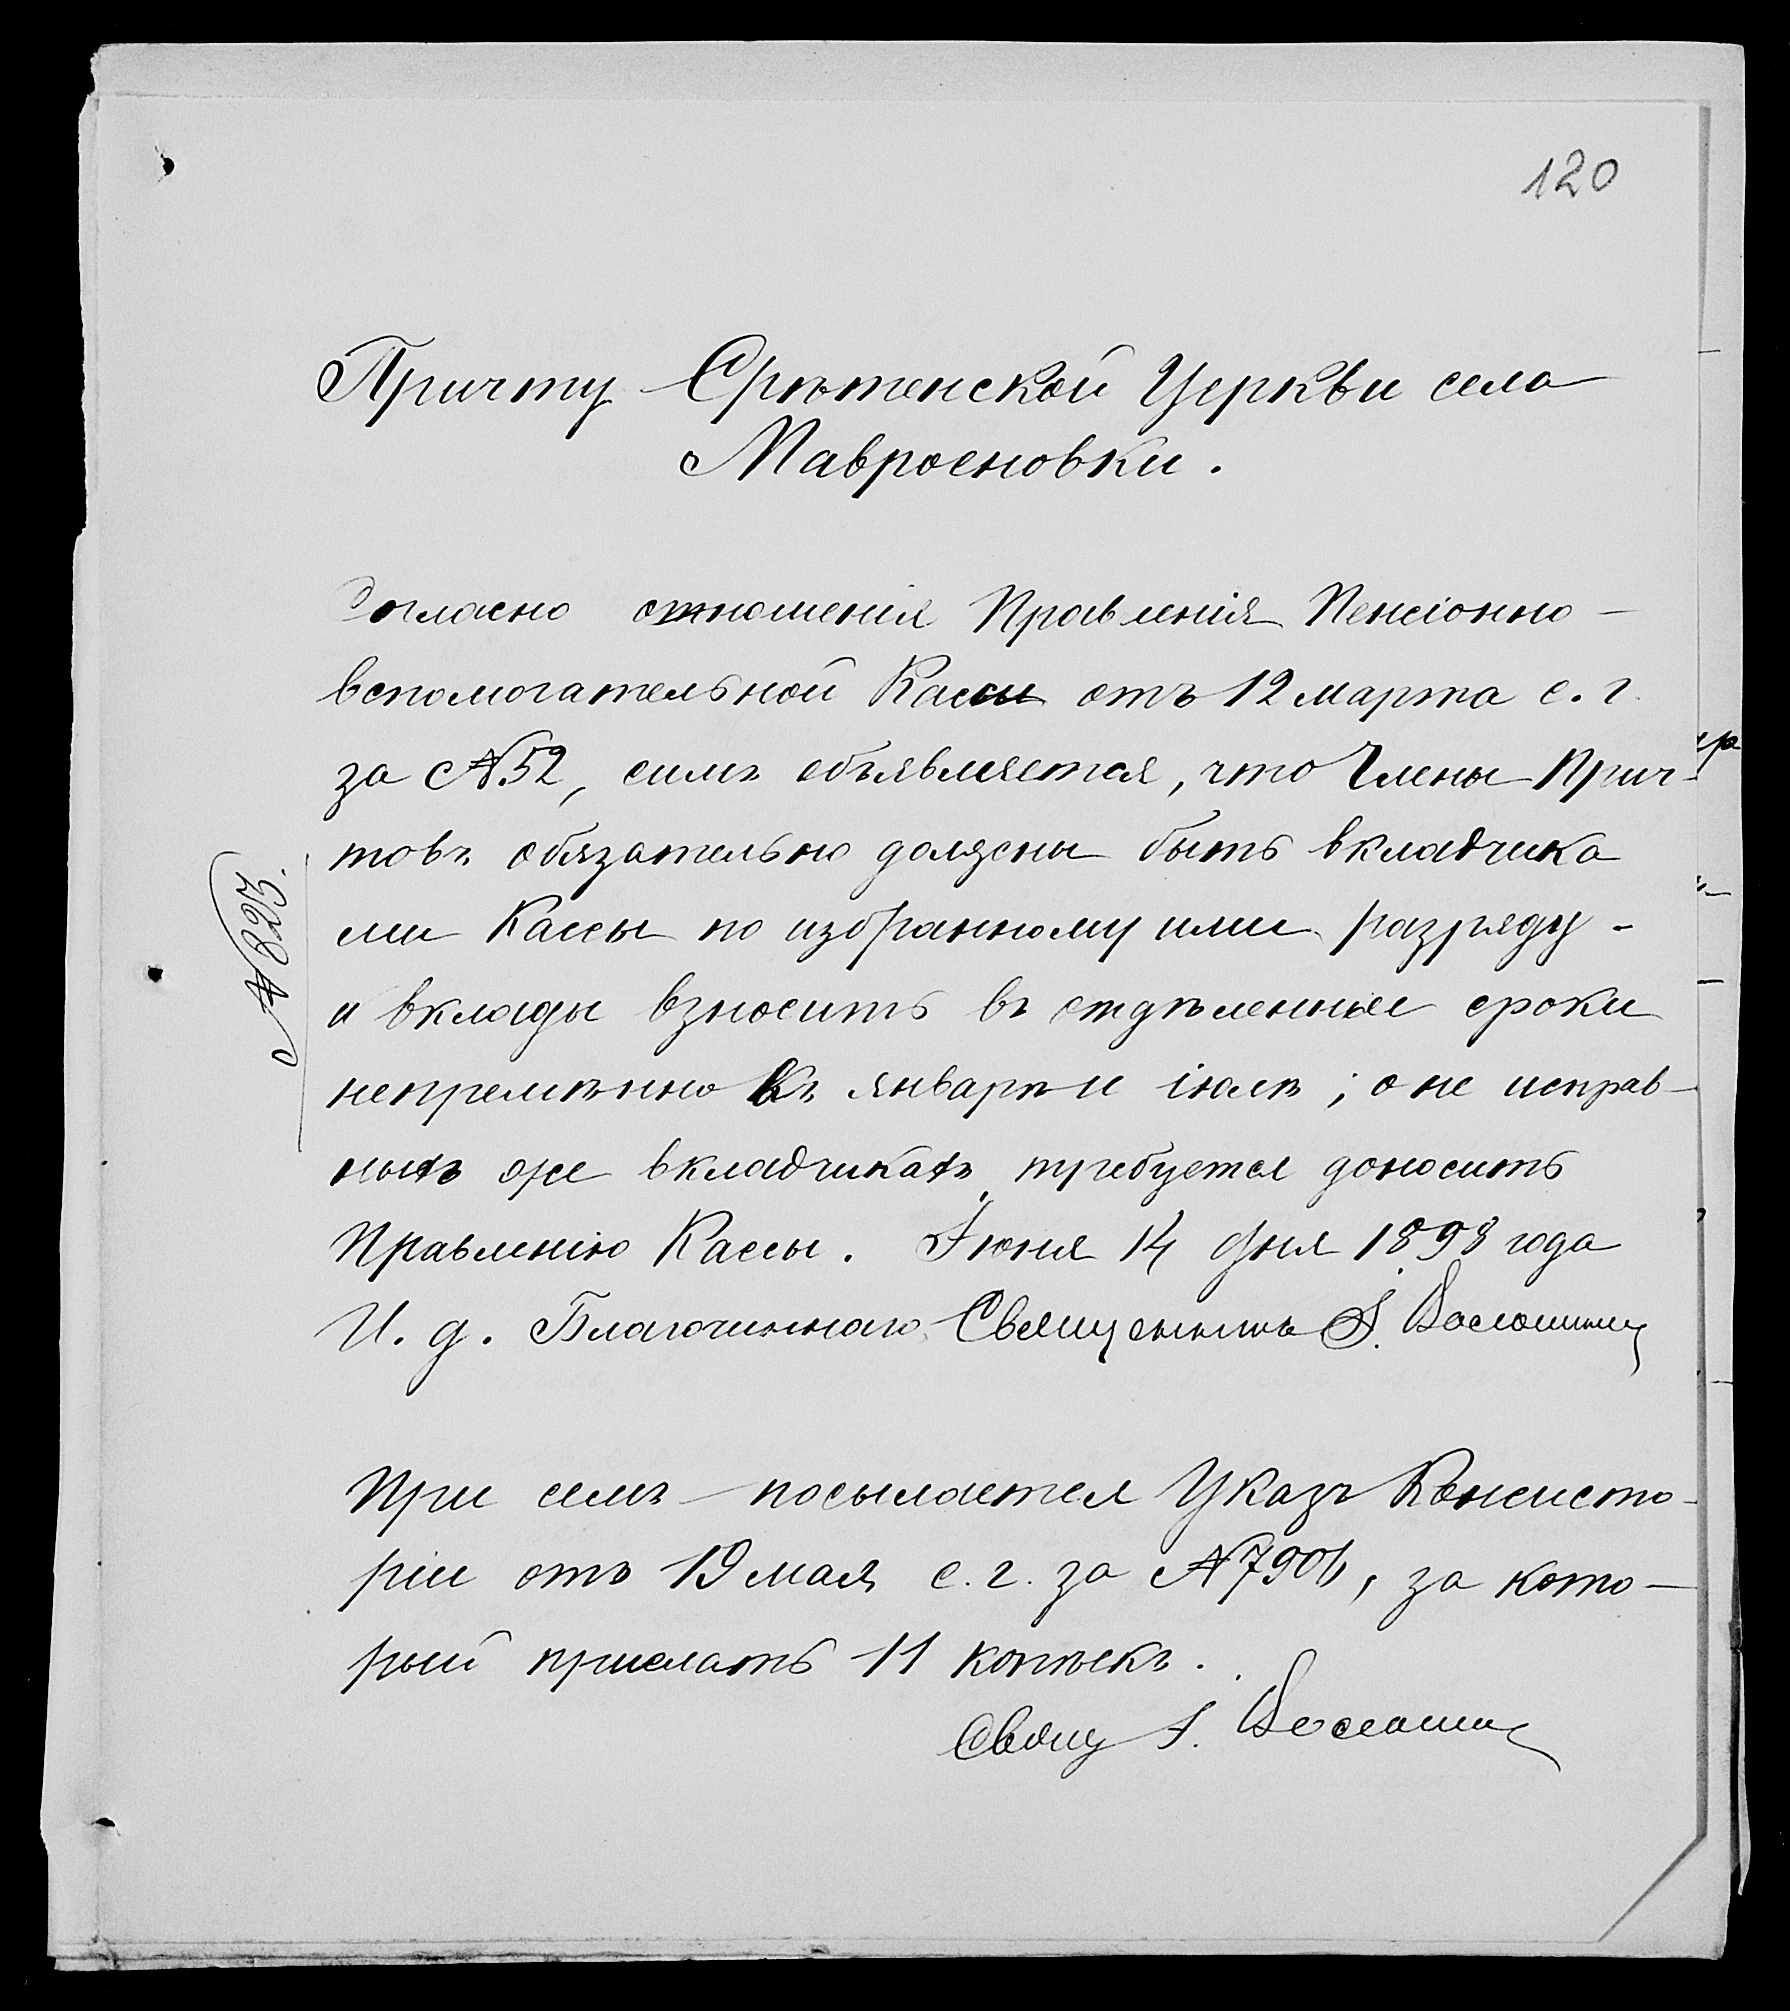 120
Причту Срѣтенской Церкви села
Мавроеновки.
Согласно отношенія Правленія Пенсіонно-
вспомогательной Кассы отъ 12 марта с. г.
за №52, симъ объявляется, что Члены Прич-
товъ обязательно должны быть вкладчика
ми Кассы по избранному ими разряду -
и вклады взносить въ опредѣленные сроки
непремѣнно въ январѣ и іюлѣ; о не исправ-
ныхъ же вкладчикахъ требуется доносить
Правленію Кассы. Іюня 14 дня 1898 года
И. д. Благочиннаго Священникъ І.
№ 825.
При семъ посылается Указъ Консисто-
ріи отъ 19 мая с. г. за №7906, за кото-
рый прислать 11 копѣекъ.
Свящ І.